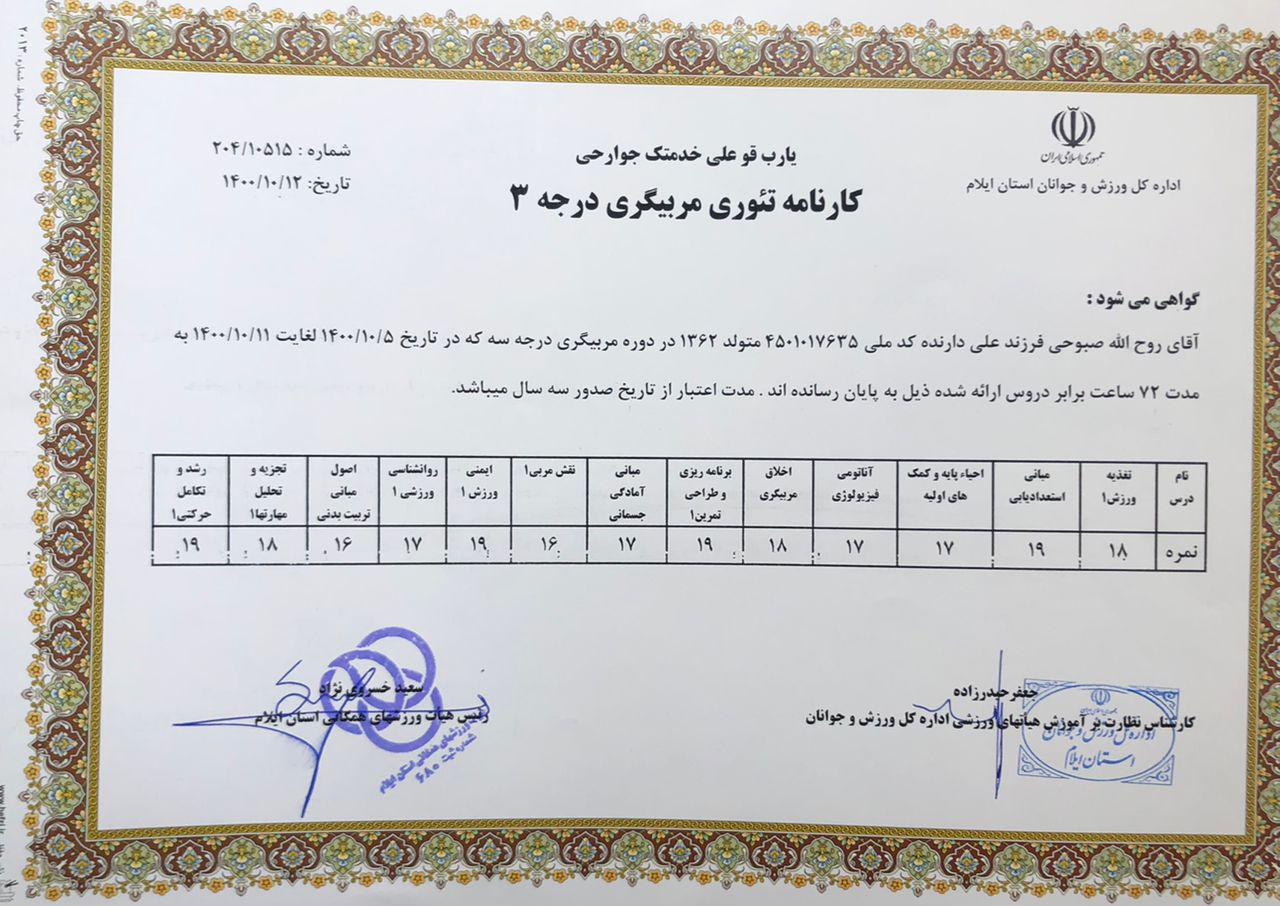 جمهوری اسلامی ایران
اداره کل ورزش و جوانان استان ایلام
یارب قو علی خدمتک جوارحی
کارنامه تئوری مربیگری درجه ۳
شماره : ۲۰۴/۱۰۵۱۵
تاریخ: ۱۴۰۰/۱۰/۱۲
گواهی می شود :
آقای روح الله صبوحی فرزند علی دارنده کد ملی ۴۵۰۱۰۱۷۶۳۵ متولد ۱۳۶۲ در دوره مربیگری درجه سه که در تاریخ ۱۴۰۰/۱۰/۵ لغایت ۱۴۰۰/۱۰/۱۱ به
مدت ۷۲ ساعت برابر دروس ارائه شده ذیل به پایان رسانده اند . مدت اعتبار از تاریخ صدور سه سال میباشد.
نام درس | تغذیه ورزش۱ | مبانی استعدادیابی | احیاء پایه و کمک های اولیه | آناتومی فیزیولوژی | اخلاق مربیگری | برنامه ریزی و طراحی تمرین۱ | مبانی آمادگی جسمانی | نقش مربی۱ | ایمنی ورزش ۱ | روانشناسی ورزشی ۱ | اصول مبانی تربیت بدنی | تجزیه و تحلیل مهارتها۱ | رشد و تکامل حرکتی۱
نمره | ۱۸ | ۱۹ | ۱۷ | ۱۷ | ۱۸ | ۱۹ | ۱۷ | ۱۶ | ۱۹ | ۱۷ | ۱۶ | ۱۸ | ۱۹
جعفرحیدرزاده
کارشناس نظارت بر آموزش هیأتهای ورزشی اداره کل ورزش و جوانان
اداره کل ورزش و جوانان
استان ایلام
سعید خسروی نژاد
رئیس هیأت ورزشهای همگانی استان ایلام
ورزشهای همگانی استان ایلام
شماره ثبت ۶۸۰
حق چاپ محفوظ. شماره: ۲۰۱۳